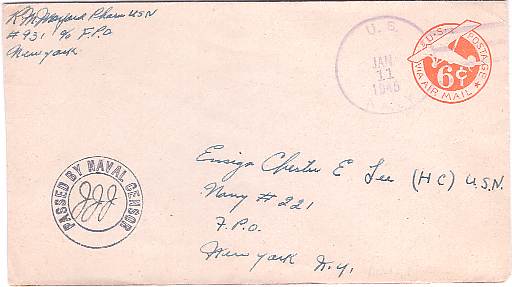 R M Mayford Pharm USN
# 931 % F.P.O
New York
U. S.
JAN
11
1945
NAVY
U.S. POSTAGE
6¢
VIA AIR MAIL
PASSED BY NAVAL CENSOR
JJJ
Ensign Chester E Lee (HC) U.S.N.
Navy # 221
F.P.O.
New York N.Y.